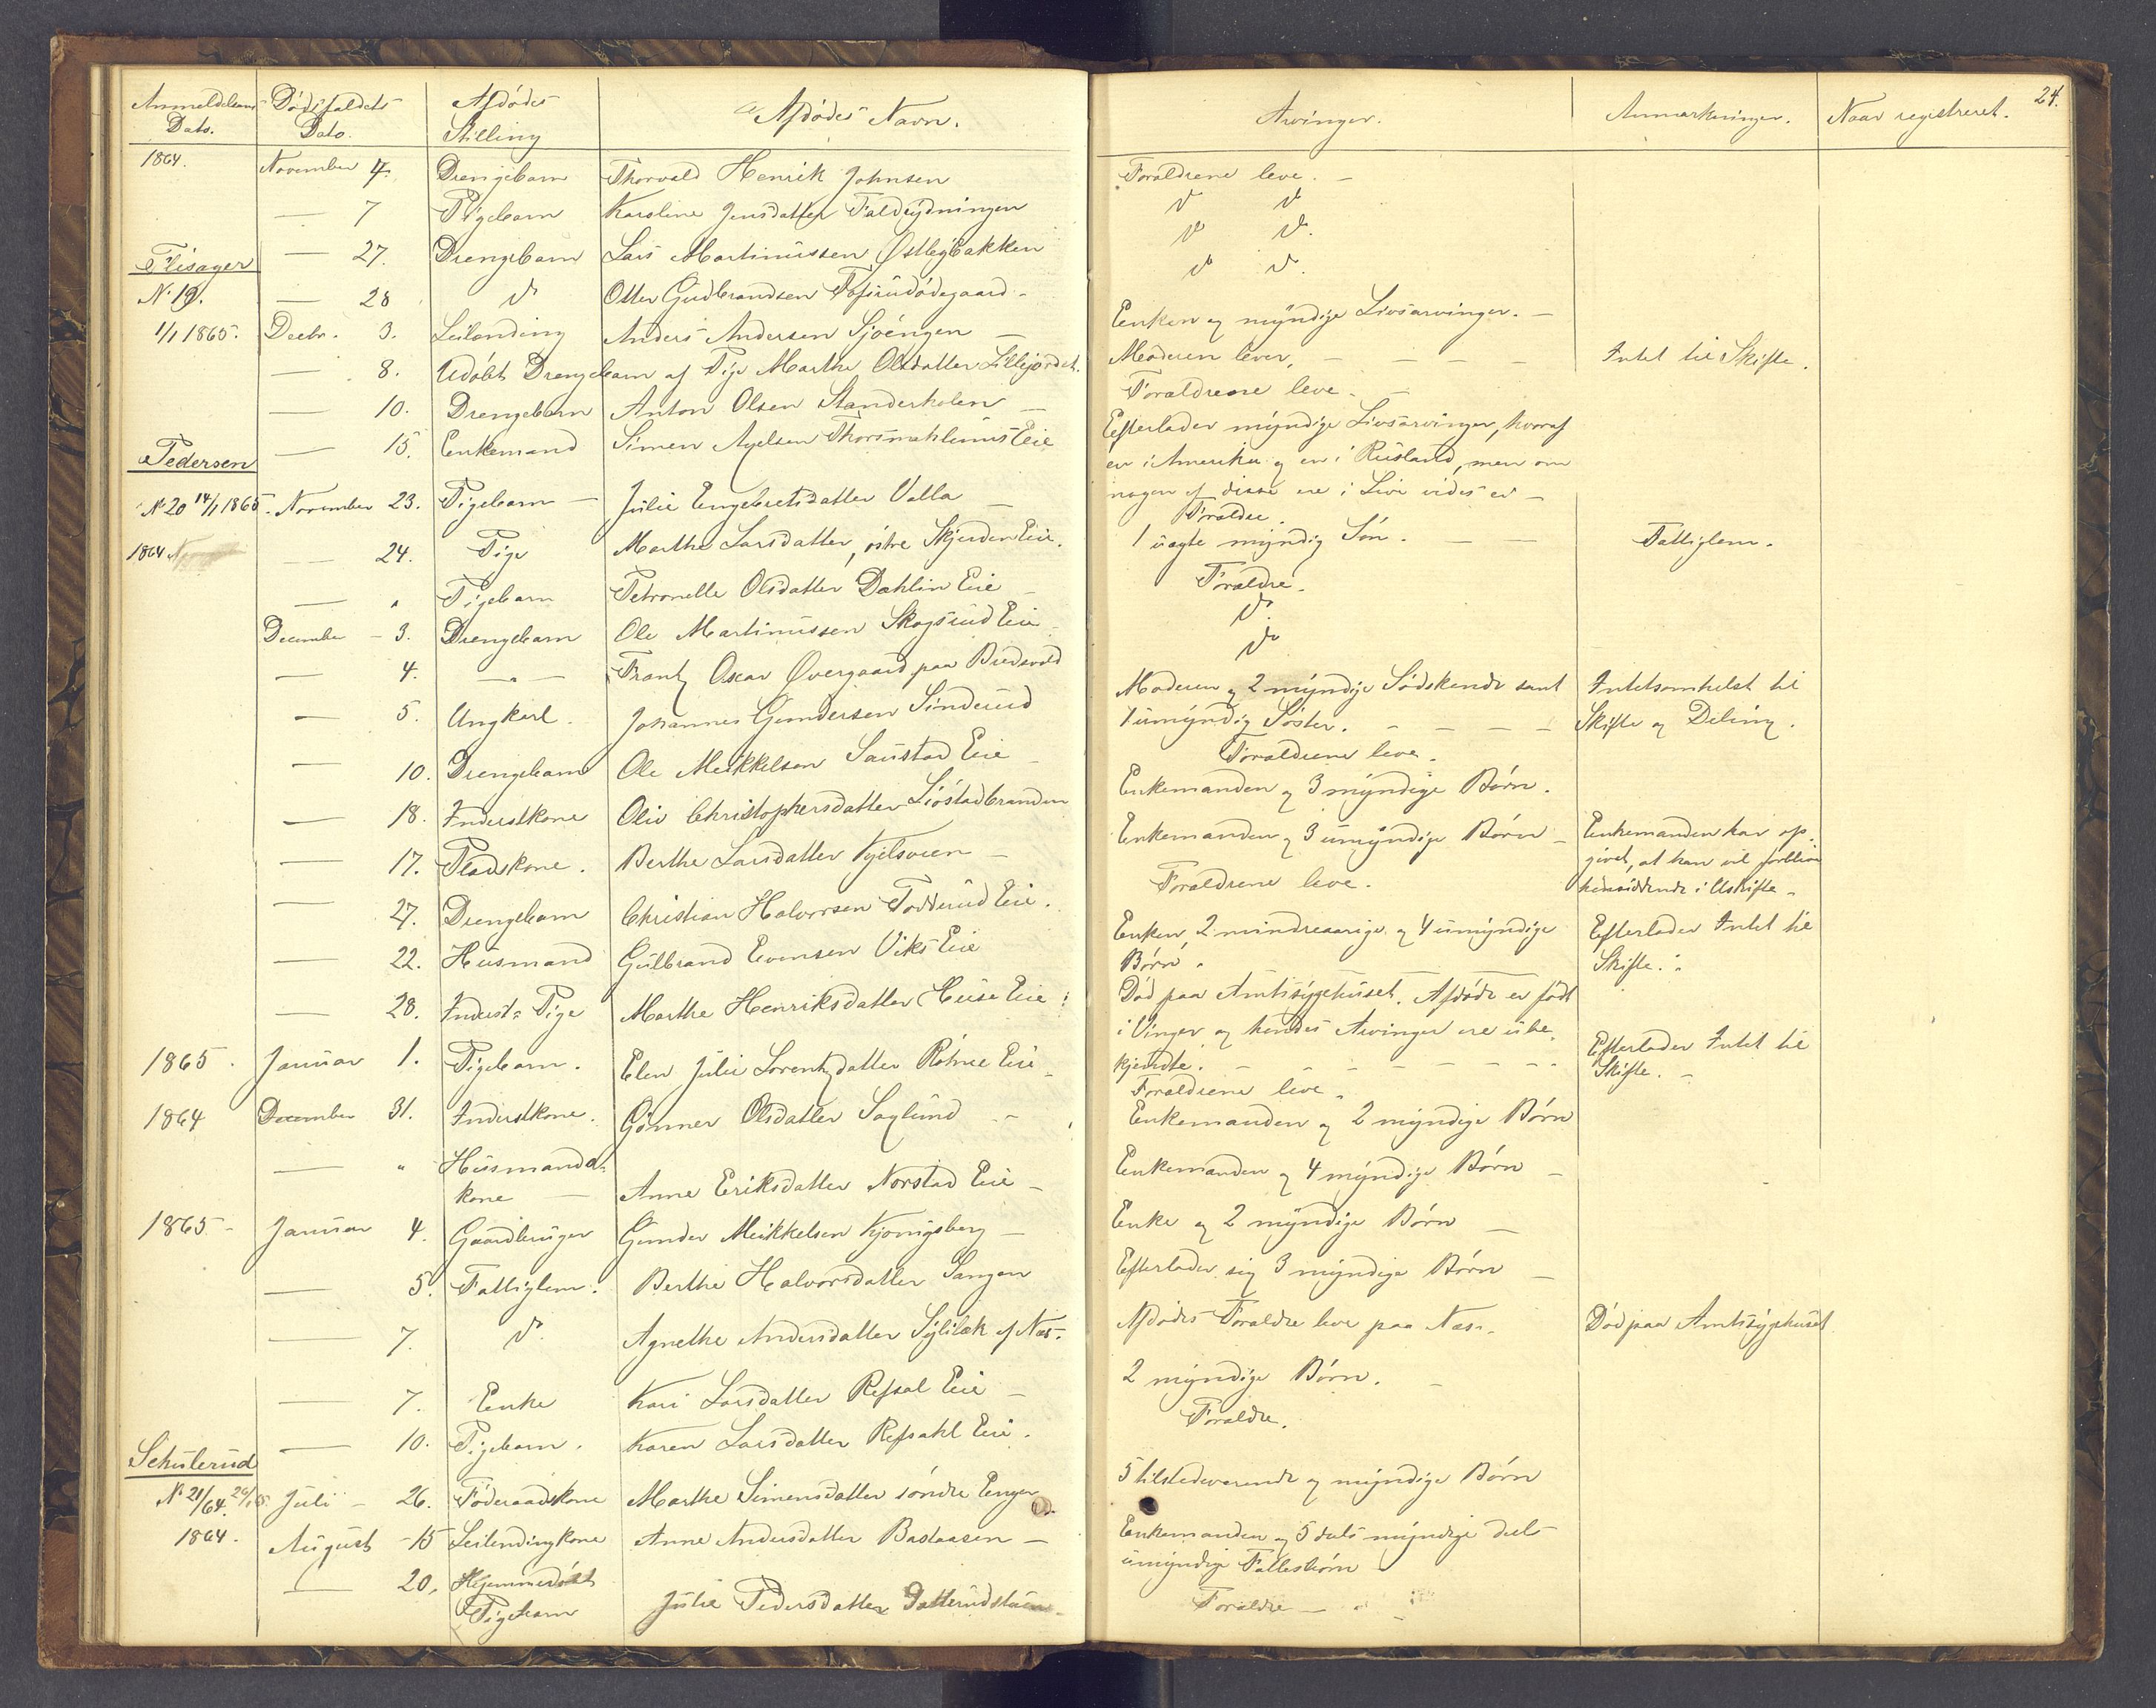 Anmeldelsens Dato. Dødsfaldets Dato. Afdødes Stilling Afdødes Navn.
1864. November 4. Drengebarn Thorvald Henrik Johnsen
— 7 Pigebarn Karoline Jensdatter Faldrydningen
Flisager — 27. Drengebarn Lars Martinussen Østbybakken
N. 19. — 28 do Otter Gudbrandsen Fossrudødegaard -
1/1 1865. Decbr. 3. Leilending Anders Andersen Sjoengen —
— 8. Udøbt Drengebarn af Pige Marthe Olsdatter Lillejordet.
— 10. Drengebarn Anton Olsen Standerholen —
Pedersen — 15. Enkemand Simen Agelsen Thorsmahlinns Eie
N. 20 14/1 1865. November 23. Pigebarn — Julie Engebretsdatter Valla —
1864 — 24. Pige Marthe Larsdatter, østre Skjerden Eie.
— " Pigebarn Petronelle Olsdatter Dahlin Eie
December - 3. Drengebarn Ole Martinussen Skogsrud Eie
— 4. — " — Frantz Oscar Overgaard paa Bredsvold
— 5. Ungkarl. Johannes Gundersen Sinderud
— 10. Drengebarn Ole Mikkelsen Saustad Eie
— 18. Inderstkone Olia Christophersdatter Liøstadbranden
— 17. Pladskone. Berthe Larsdatter Kjelsveen —
— 27. Drengebarn Christian Halvorsen Todderud Eie.
— 22. Husmand Gulbrand Evensen Viks Eie
— 28. Inderst= Pige Marthe Henriksdatter Huse Eie
1865. Januar 1. Pigebarn. Elen Julie Lorentzdatter Røhne Eie
1864 December 31. Inderstkone. Gunner Olsdatter Saglund
— " Husmands=
kone — Anne Eriksdatter Norstad Eie —
1865 - Januar 4. Gaardbruger Gunder Mikkelsen Kjonigsberg —
— 5. Fattiglem. Berthe Halvorsdatter Sangen
— 7. do. Agnethe Andersdatter Syliläk af Næs.
— 7. Enke Kari Larsdatter Refsal Eie —
— 10. Pigebarn. Karen Larsdatter Refsahl Eie.
Schulerud
N. 21/64. Juli — 26. Føderaadskone Marthe Simensdatter søndre Enger
1864. August - 15 Leilendingkone Anne Andersdatter Bastaasen —
— 20. Hjemmedøbt
Pigebarn Julie Pedersdatter
24.
Arvinger. Anmærkninger. Naar registreret.
Forældrene leve. —
do do
do do.
do do.
Enken og myndige Livsarvinger. —
Moderen lever. — — — — Intet til Skifte.
Forældrene leve. —
Efterlader myndige Livsarvinger, hvoraf
en i Amerika og en i Rusland, men om
nogen af disse ere i Live vides ei —
Forældre.
1 uægte myndig Søn. — — Fattiglem.
Forældre.
do
do
Moderen og 2 myndige Sødskende samt Intetsomhelst til
1 umyndig Søster. — — — — Skifte og Deling.
Forældrene leve.
Enkemanden og 3 myndige Børn.
Enkemanden og 3 umyndige Børn — Enkemanden har op-
givet, at han vil forblive
Forældrene leve. hensiddende i Uskifte -
Enken, 2 mindreaarige og 4 umyndige Efterlader Intet til
Børn. Skifte.
Død paa Amtssygehuset. Afdøde er født
i Vinger og hendes Arvinger ere ube-
kjendte. — — — — — Efterlader Intet til
Skifte. -
Forældrene leve.
Enkemanden og 2 myndige Børn
Enkemanden og 4 myndige Børn —
Enke og 2 myndige Børn —
Efterlader sig 3 myndige Børn —
Afdødes Forældre leve paa Næs. Død paa Amtssygehuset
2 myndige Børn. —
Forældre.
5 tilstedeværende og myndige Børn
Enkemanden og 5 dels myndige dels
umyndige Fællesbørn
Forældre —